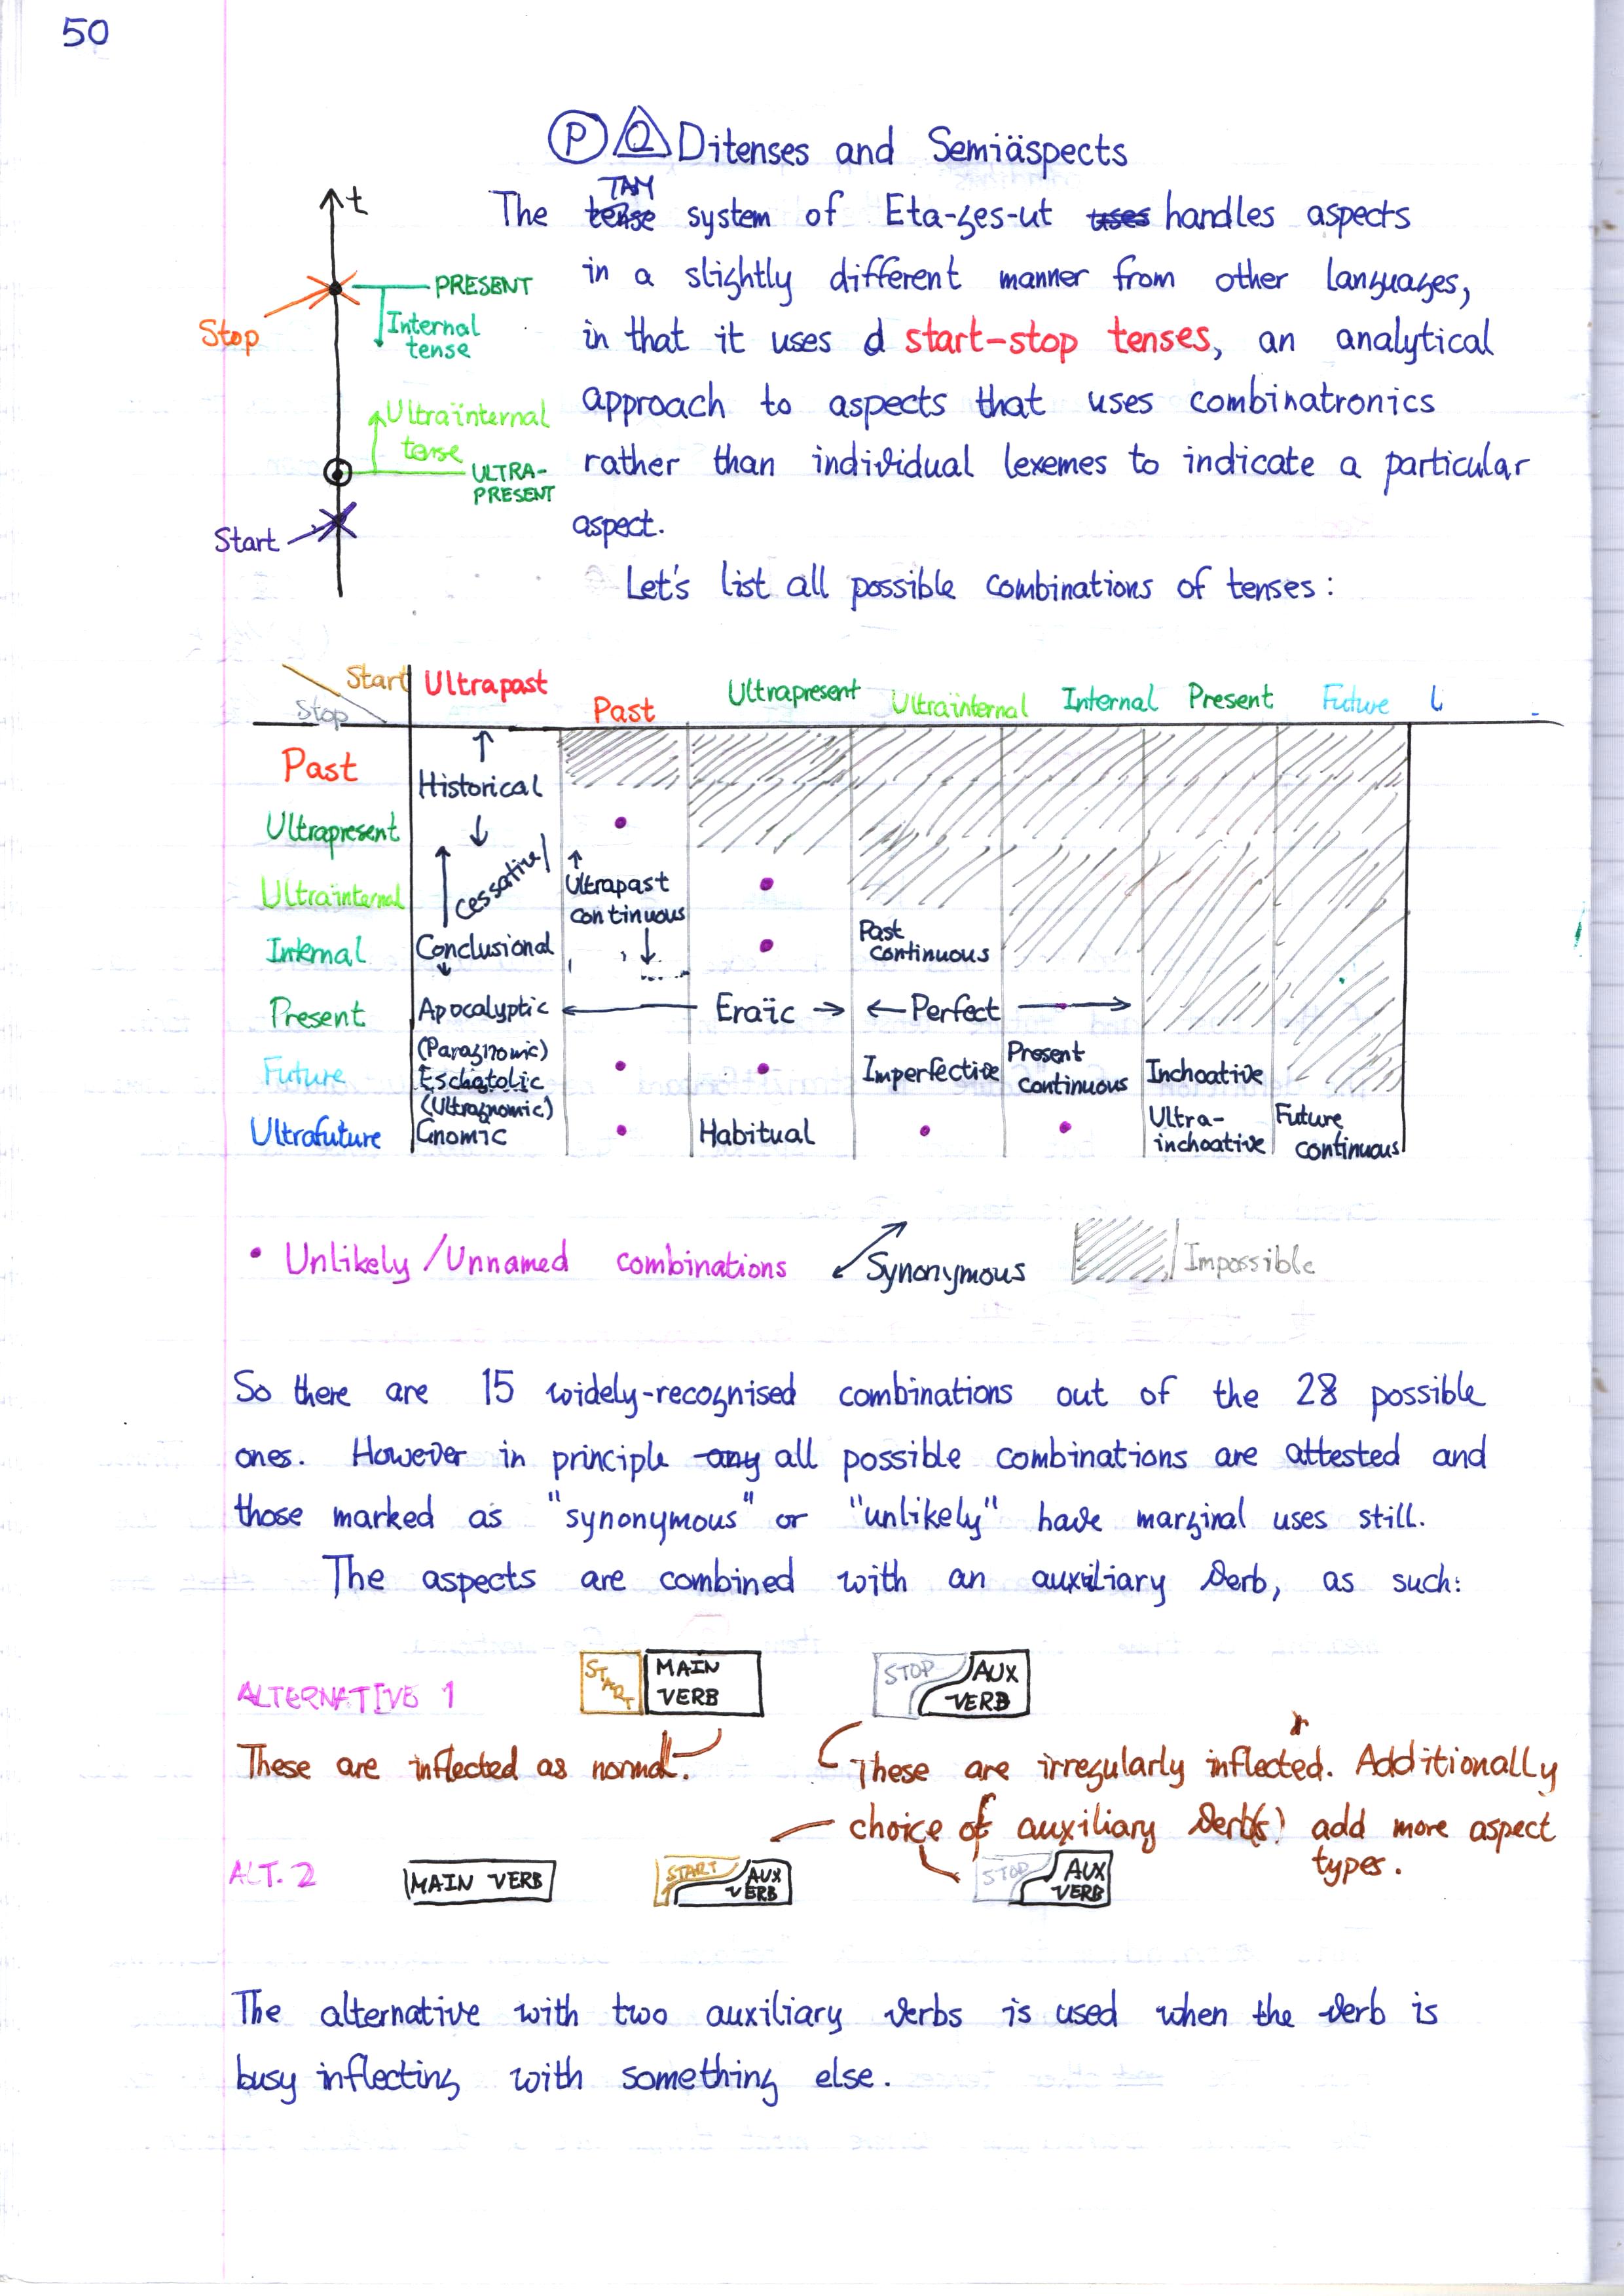 50
P Q Ditenses and Semiäspects
TAM
The tense system of Eta-ges-ut uses handles aspects
in a slightly different manner from other languages,
in that it uses d start-stop tenses, an analytical
approach to aspects that uses combinatronics
rather than individual lexemes to indicate a particular
aspect.
Let's list all possible combinations of tenses:
t
PRESENT
Stop
Internal
tense
Ultraïnternal
tense
ULTRA-
PRESENT
Start
Start Ultrapast Past Ultrapresent Ultraïnternal Internal Present Future
Stop
Past Historical
Ultrapresent
Ultraïnternal Cessative/ Ultrapast
continuous
Internal Conclusional Past
continuous
Present Apocalyptic Eraïc Perfect
(Paragnomic)
Future Eschatolic Imperfective Present
continuous Inchoative
(Ultragnomic)
Ultrafuture Gnomic Habitual Ultra-
inchoative Future
continuous
• Unlikely/Unnamed combinations Synonymous Impossible
So there are 15 widely-recognised combinations out of the 28 possible
ones. However in principle any all possible combinations are attested and
those marked as "synonymous" or "unlikely" have marginal uses still.
The aspects are combined with an auxiliary verb, as such:
ALTERNATIVE 1 START MAIN
VERB STOP AUX
VERB
These are inflected as normal.
These are irregularly inflected. Additionally
choice of auxiliary verb(s) add more aspect
types.
ALT. 2 MAIN VERB START AUX
VERB STOP AUX
VERB
The alternative with two auxiliary verbs is used when the verb is
busy inflecting with something else.